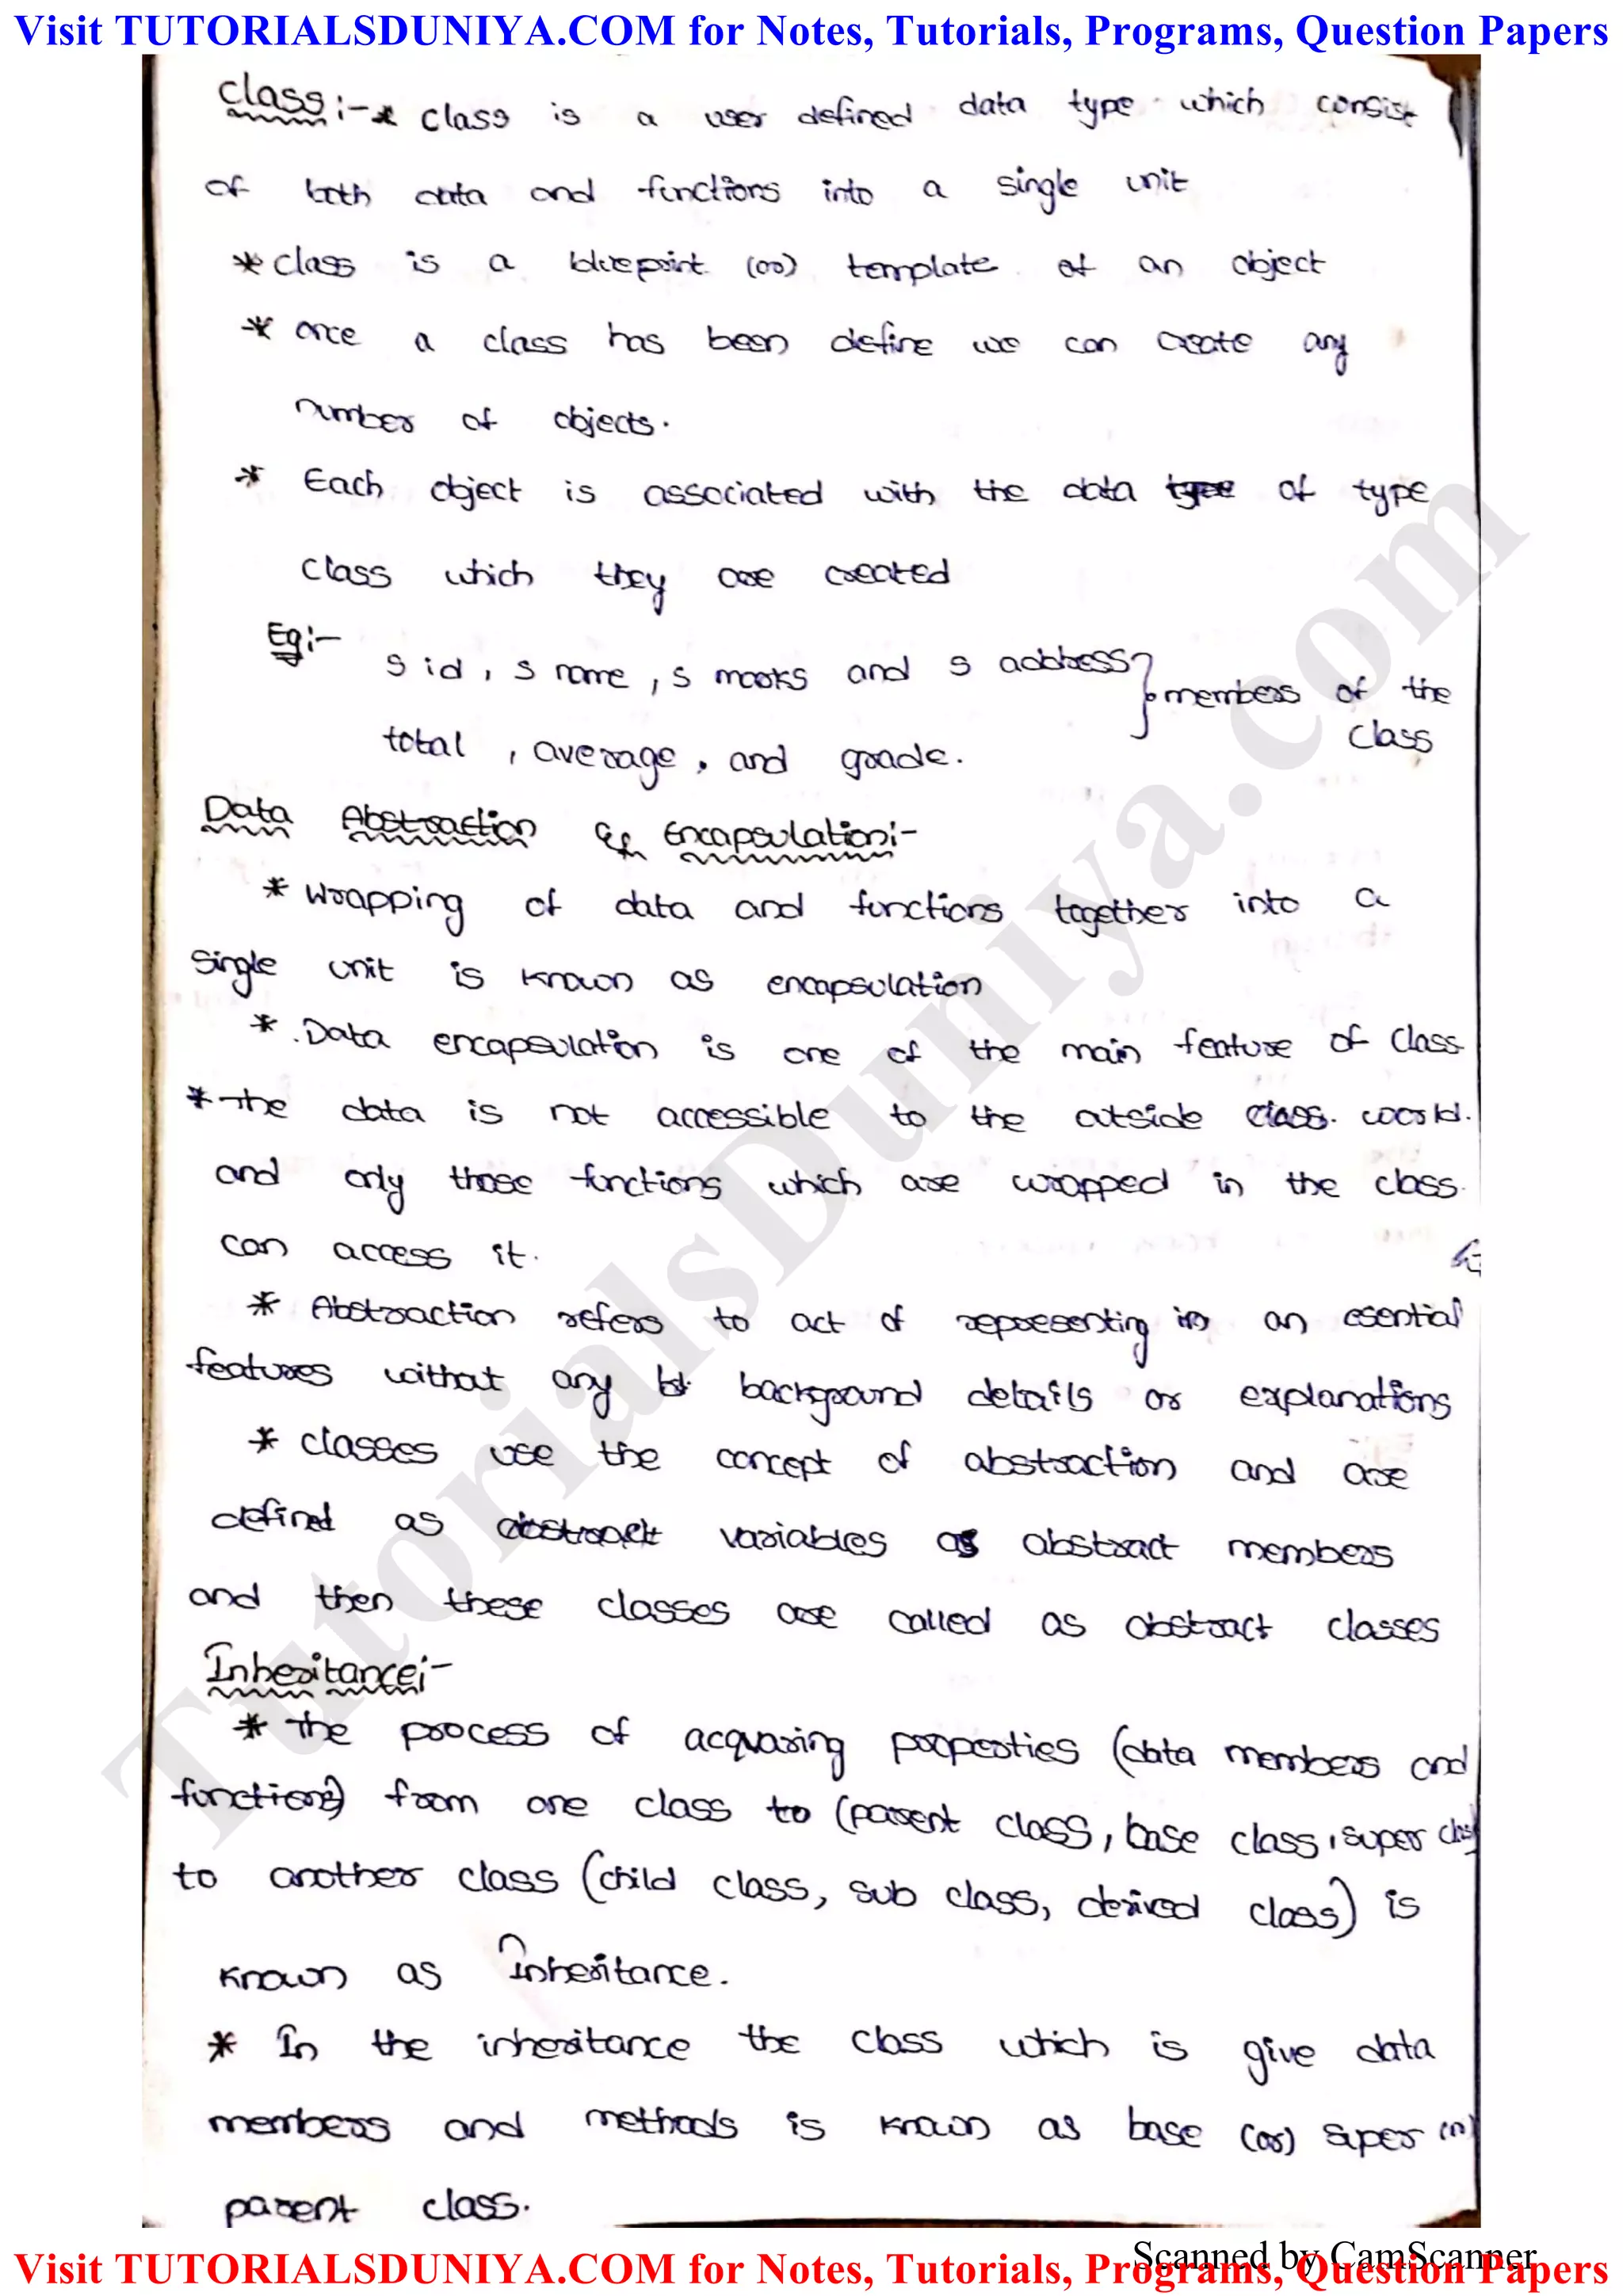 Visit TUTORIALSDUNIYA.COM for Notes, Tutorials, Programs, Question Papers
class :- * class is a user defined data type which consist
of both data and functions into a single unit
* class is a blueprint (or) template of an object
* once a class has been define we can create any
number of objects.
* Each object is associated with the data type of type
class which they are created
Eg:-
s id, s name, s marks and s address } members of the
total, average, and grade. class
Data Abstraction & Encapsulation:-
* Wrapping of data and functions together into a
single unit is known as encapsulation
* Data encapsulation is one of the main feature of class
* The data is not accessible to the outside class. world.
and only those functions which are wrapped in the class
can access it.
* Abstraction refers to act of representing an esential
features without any background details or explanations
* classes use the concept of abstraction and are
defined as abstract variables as abstract members
and then these classes are called as abstract classes
Inheritance:-
* The process of acquaring properties (data members and
functions) from one class to (parent class, base class, super class
to another class (child class, sub class, derived class) is
known as Inheritance.
* In the inheritance the class which is give data
members and methods is known as base (or) super
parent class.
TutorialsDuniya.com
Scanned by CamScanner
Visit TUTORIALSDUNIYA.COM for Notes, Tutorials, Programs, Question Papers